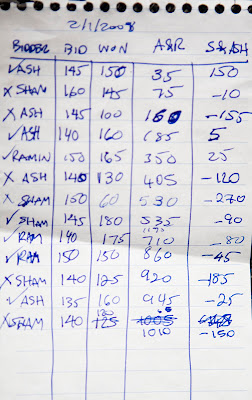 2/1/2008
BIDDER BID WON A&R S&ASH
✓ASH 145 150 35 150
X SHAM 160 145 75 -10
X ASH 145 100 160 -155
✓ASH 140 160 185 5
✓RAMIN 150 165 350 25
X ASH 140 130 405 -120
X SHAM 150 60 530 -270
✓SHAM 145 180 535 -90
✓RAM 140 175 710 -80
✓RAM 150 150 860 -45
X SHAM 140 125 920 -185
✓ASH 135 160 945 -25
X SHAM 140 130
125 1005
1010 -150